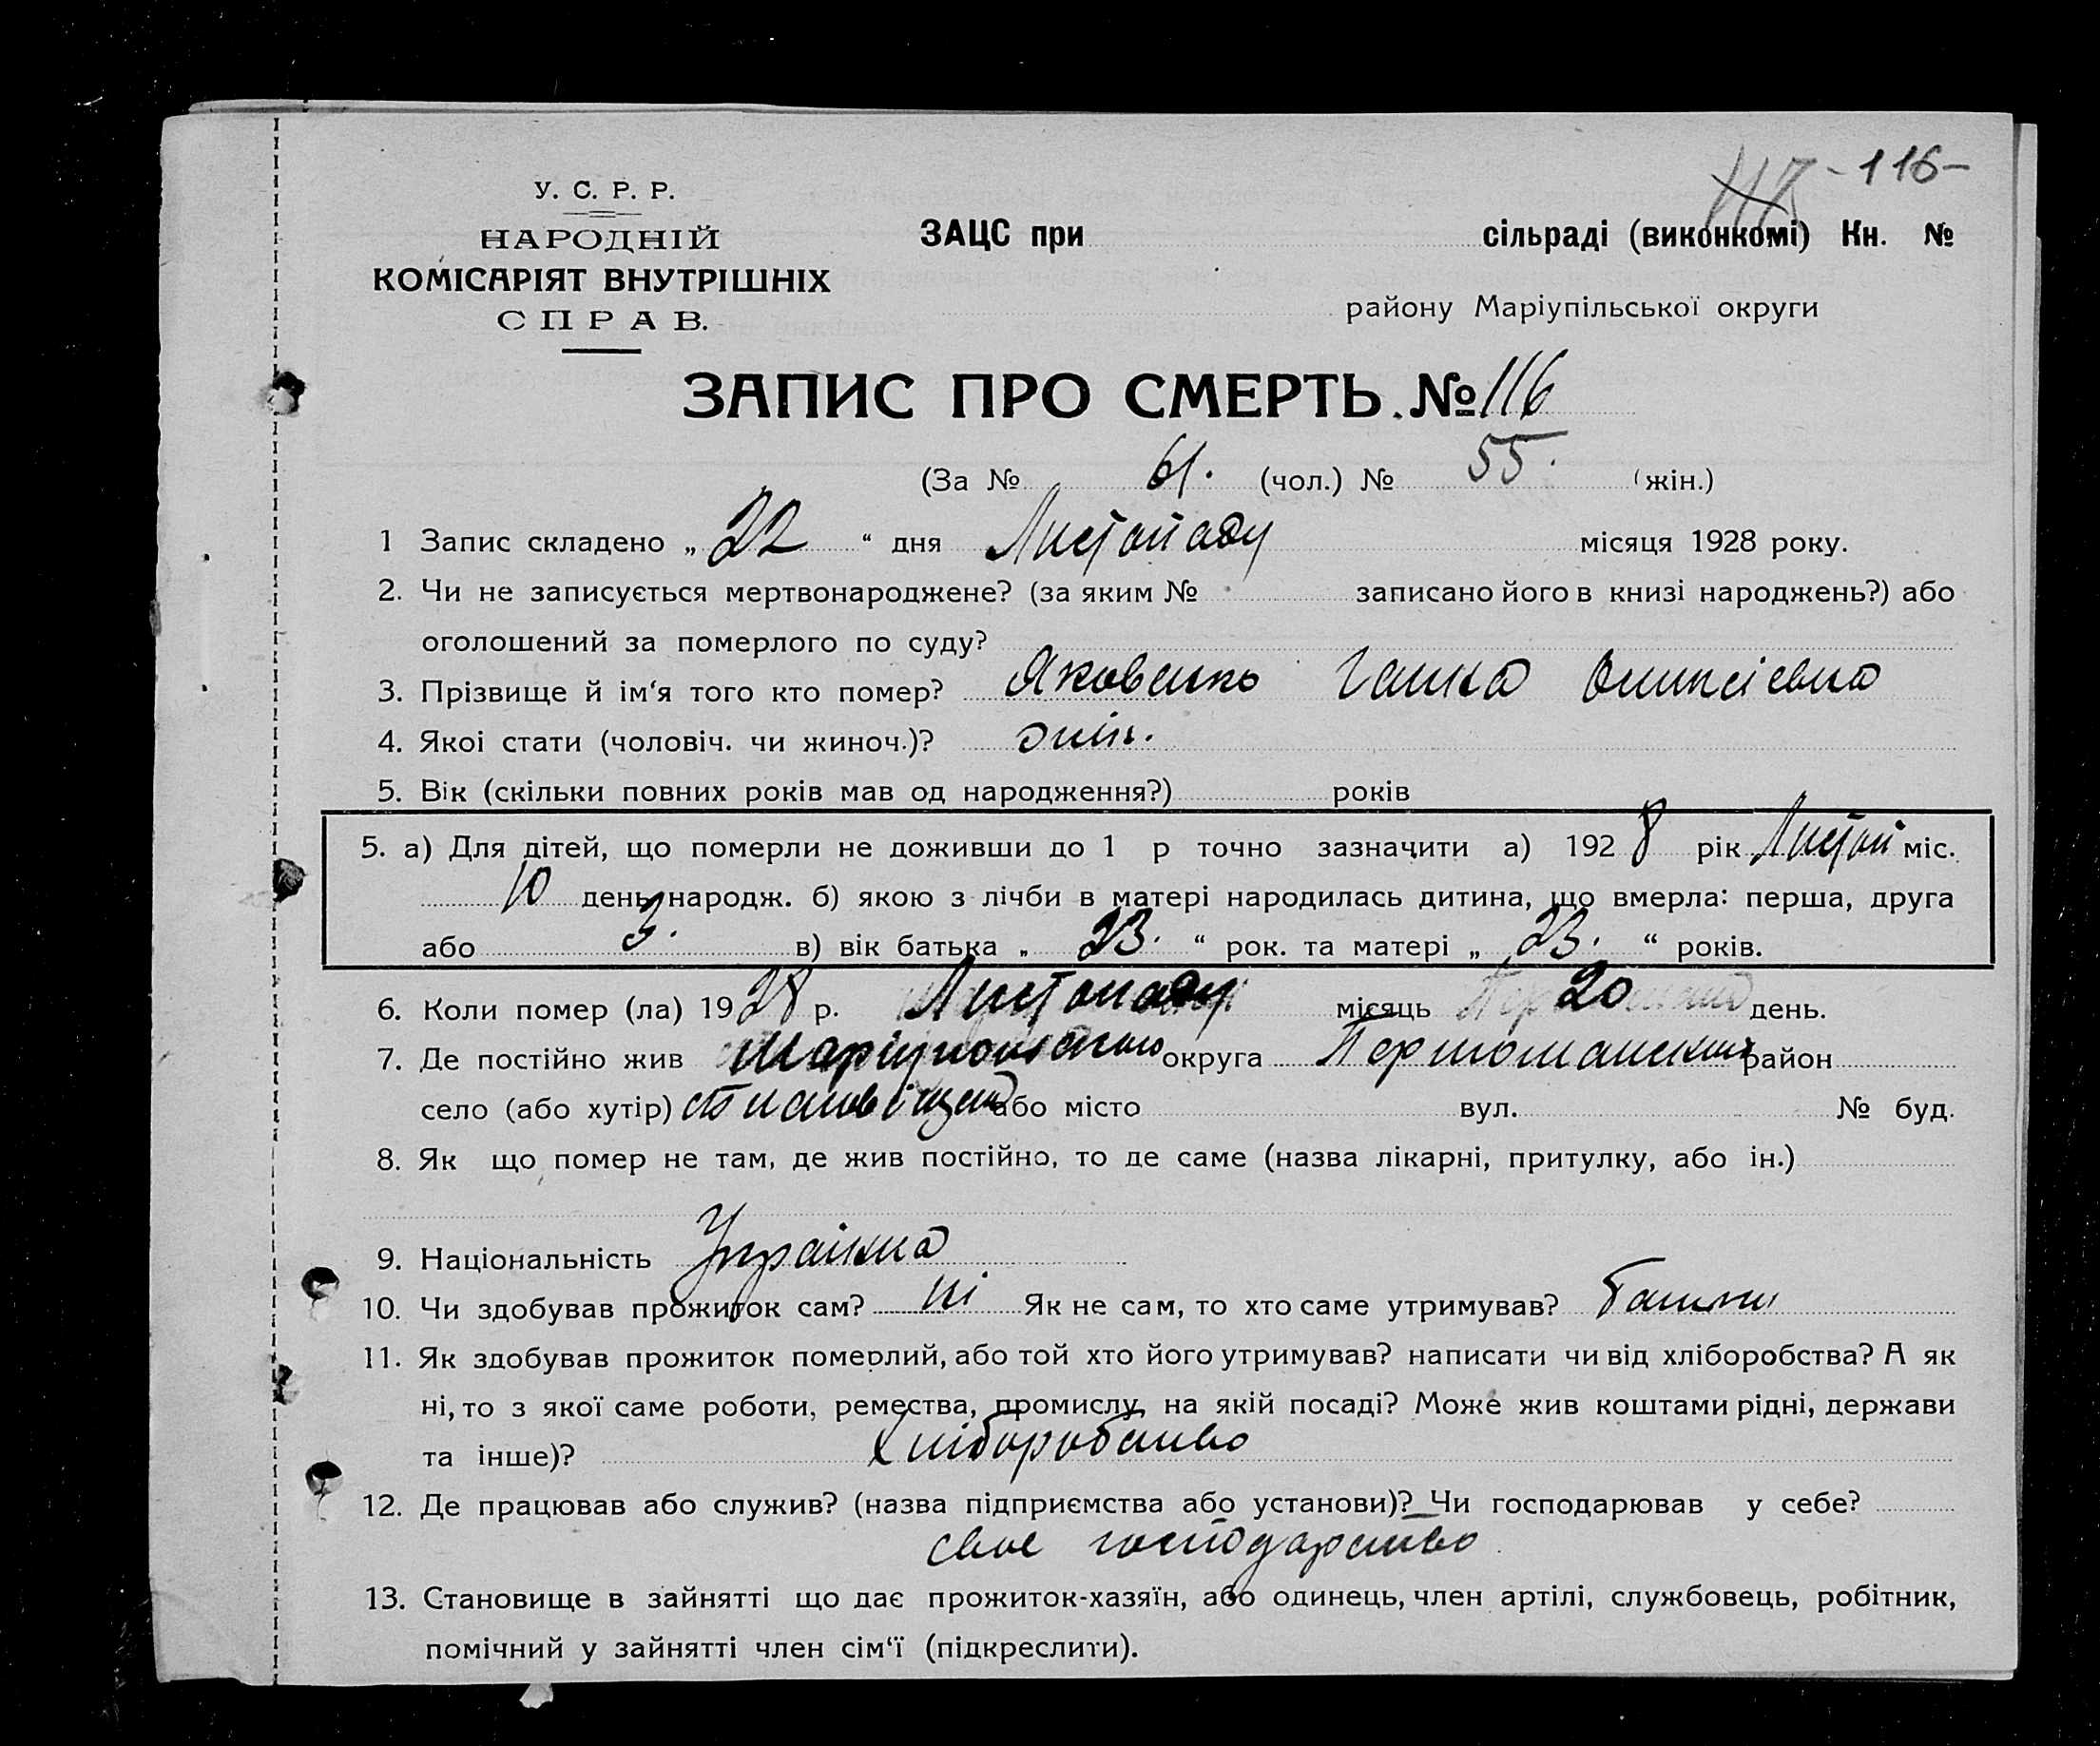 117 - 116 -
У. С. Р. Р.
НАРОДНІЙ
КОМІСАРІЯТ ВНУТРІШНІХ
СПРАВ.
ЗАЦС при сільраді (виконкомі) Кн. №
району Маріупільської округи
ЗАПИС ПРО СМЕРТЬ №116
(За № 61. (чол.) № 55. (жін.)
1 Запис складено „ 22 “ дня Листопаду місяця 1928 року.
2. Чи не записується мертвонароджене? (за яким № записано його в книзі народжень?) або
оголошений за померлого по суду?
3. Прізвище й ім‘я того хто помер? Яковенко Ганна Олексієвна
4. Якоі стати (чоловіч. чи жиноч.)? жін.
5. Вік (скільки повних років мав од народження?) років
5. а) Для дітей, що померли не доживши до 1 р точно зазначити а) 1928 рік Листоп міс.
10 день народж. б) якою з лічби в матері народилась дитина, що вмерла: перша, друга
або 3. в) вік батька „ 23. “ рок. та матері „ 23. “ років.
6. Коли помер (ла) 1928 р. Листопаду місяць 20 день.
7. Де постійно жив округа район
село (або хутір) або місто вул. № буд.
8. Як що помер не там, де жив постійно, то де саме (назва лікарні, притулку, або ін.)
9. Національність Українка
10. Чи здобував прожиток сам? ні Як не сам, то хто саме утримував? батьки
11. Як здобував прожиток померлий, або той хто його утримував? написати чи від хліборобства? А як
ні, то з якої саме роботи, ремества, промислу, на якій посаді? Може жив коштами рідні, держави
та інше)? Хліборобство
12. Де працював або служив? (назва підприємства або установи)? Чи господарював у себе?
своє господарство
13. Становище в зайнятті що дає прожиток-хазяїн, або одинець, член артілі, службовець, робітник,
помічний у зайнятті член сім‘ї (підкреслити).